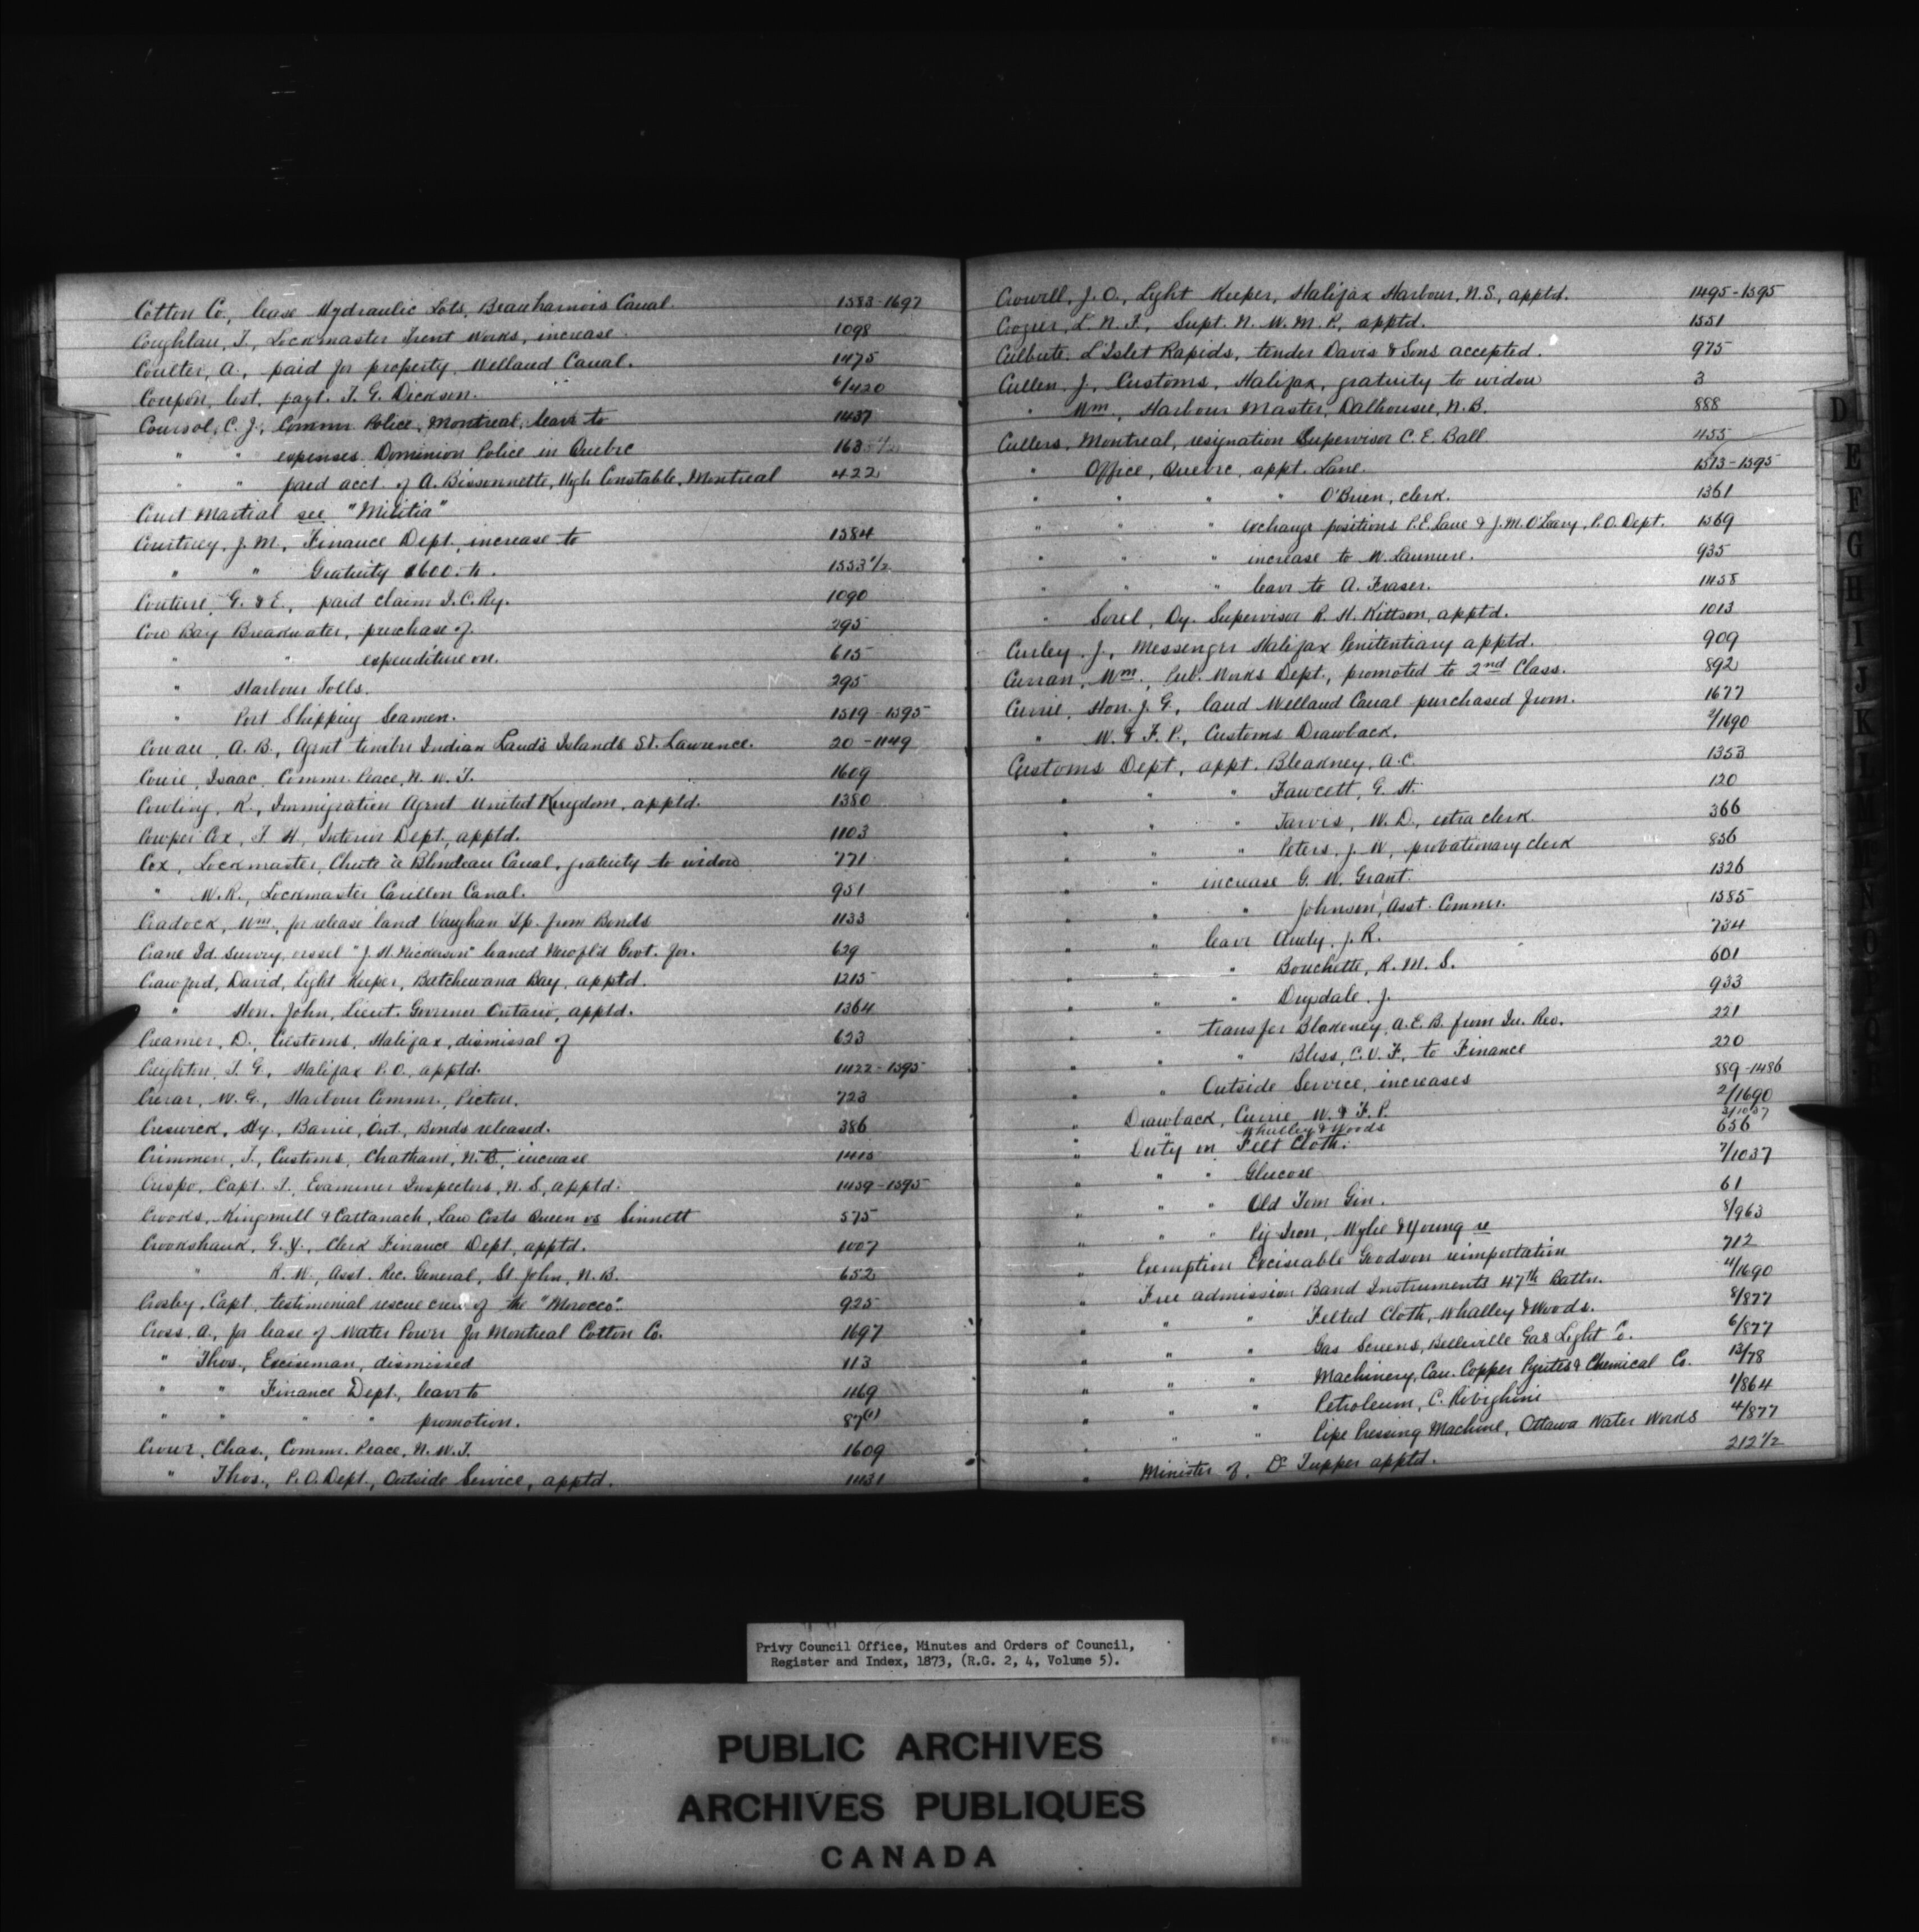 Cotton Co., lease Hydraulic Lots, Beauharnois Canal. 1583-1697
Coughlan, T., Lockmaster Trent Works, increase. 1098
Coulter, A., paid for property, Welland Canal. 1475
Coupon, lost, payt. T. G. Dickson. 6/420
Coursol, C. J., Commr Police, Montreal, leave to 1437
" " expenses Dominion Police in Quebec 163
" " paid acct. of A. Bissonnette, High Constable, Montreal 422
Court Martial see "Militia"
Courtney, J. M., Finance Dept., increase to 1584
" " Gratuity $600. to. 1553 1/2
Couture, G. & E., paid claim I. C. Ry. 1090
Cow Bay Breakwater, purchase of. 295
" " expenditure on. 615
" Harbour Tolls. 295
" Port Shipping Seamen. 1519-1595
Cowan, A. B., Agent timber Indian Lands Islands St. Lawrence. 20-1149
Cowie, Isaac, Commr. Peace, N. W. T. 1609
Cowling, R., Immigration Agent United Kingdom, apptd. 1380
Cowper Cox, T. H., Interior Dept., apptd. 1103
Cox, Lockmaster, Chute à Blondeau Canal, gratuity to widow 771
" W. R., Lockmaster Carillon Canal. 951
Cradock, Wm., for release land Vaughan Tp. from Bonds 1133
Crane Id. Survey, vessel "J. H. Nickerson" loaned Newf'l'd Govt. for. 629
Crawford, David, Light Keeper, Batchewana Bay, apptd. 1215
" Hon. John, Lieut. Governor Ontario, apptd. 1364
Creamer, D., Customs, Halifax, dismissal of 623
Creighton, T. G., Halifax P. O., apptd. 1422-1595
Crerar, W. G., Harbour Commr., Pictou. 723
Creswick, Hy., Barrie, Ont., Bonds released. 386
Crimmen, T., Customs, Chatham, N. B., increase 1415
Crispo, Capt. T., Examiner Inspectors, N. S., apptd. 1459-1595
Crooks, Kingsmill & Cattanach, Law Costs Queen vs Sinnett 575
Crookshank, G. Y., Clerk Finance Dept., apptd. 1007
" R. W., Asst. Rec. General, St. John, N. B. 652
Crosby, Capt., testimonial rescue crew of the "Morocco". 925
Cross, A., for lease of Water Power for Montreal Cotton Co. 1697
" Thos., Exciseman, dismissed 113
" " Finance Dept., leave to 1169
" " " " promotion. 87(1)
Crowe, Chas., Commr. Peace, N. W. T. 1609
" Thos., P. O. Dept., Outside Service, apptd. 1131
Crowell, J. O., Light Keeper, Halifax Harbour, N. S., apptd. 1495-1595
Crozier, L. N. F., Supt. N. W. M. P., apptd. 1551
Culbute L'Islet Rapids, tender Davis & Sons accepted. 975
Cullen, J., Customs, Halifax, gratuity to widow 3
" Wm., Harbour Master, Dalhousie, N. B. 888
Cullers, Montreal, resignation Supervisor C. E. Ball 455
" Office, Quebec, appt. Lane. 1513-1595
" " " " O'Brien, clerk. 1361
" " " exchange positions P. E. Lane & J. M. O'Leary, P. O. Dept. 1569
" " " increase to W. Lanniere. 935
" " " leave to A. Fraser. 1458
" Sorel, Dy. Supervisor R. H. Kittson, apptd. 1013
Curley, J., Messenger Halifax Penitentiary apptd. 909
Curran, Wm., Pub. Works Dept., promoted to 2nd Class. 892
Currie, Hon. J. G., land Welland Canal purchased from. 1677
" W. & F. P., Customs Drawback. 2/1690
Customs Dept., appt. Bleakney, A. C. 1353
" " " Fawcett, G. H. 120
" " " Jarvis, W. D., extra clerk 366
" " " Peters, J. W., probationary clerk 856
" " increase G. W. Grant. 1326
" " " Johnson, Asst. Commr. 1585
" " leave Audy, J. R. 734
" " " Bouchette, R. M. S. 601
" " " Drysdale, J. 933
" " transfer Blakeney, A. E. B. from In. Rev. 221
" " " Bliss, C. V. F., to Finance 220
" " Outside Service, increases 889-1486
" Drawback, Currie, W. & F. P. 2/1690
" " Whalley & Woods 3/1037
" Duty on Felt Cloth. 656
" " " Glucose 7/1037
" " " Old Tom Gin. 61
" " " Pig Iron, Wylie & Young re 8/963
" Exemption Exciseable Goods on reimportation 712
" Free admission Band Instruments 47th Battn. 4/1690
" " " Felted Cloth, Whalley & Woods. 8/877
" " " Gas Screens, Belleville Gas Light Co. 6/877
" " " Machinery, Can. Copper Pyrites & Chemical Co. 13/78
" " " Petroleum, C. Ribighini 1/864
" " " Pipe Pressing Machine, Ottawa Water Works 4/877
" Minister of, Dr Tupper apptd. 212 1/2
D
E
F
G
H
I
J
K
Privy Council Office, Minutes and Orders of Council,
Register and Index, 1873, (R.G. 2, 4, Volume 5).
PUBLIC ARCHIVES
ARCHIVES PUBLIQUES
CANADA